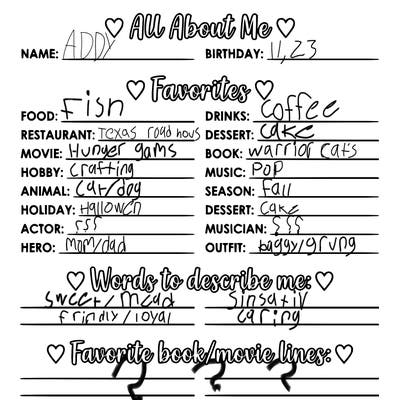 ♡ All About Me ♡
NAME: ADDY BIRTHDAY: 11,23
♡ Favorites ♡
FOOD: Fish DRINKS: Coffee
RESTAURANT: Texas road hous DESSERT: Cake
MOVIE: Hunger gams BOOK: warrior cats
HOBBY: Crafting MUSIC: POP
ANIMAL: Cat/dog SEASON: Fall
HOLIDAY: Hallowen DESSERT: Cake
ACTOR: ??? MUSICIAN: ???
HERO: mom/dad OUTFIT: baggy/grung
♡ Words to describe me: ♡
Sweet/mean Sinsativ
frindly/loyal caring
♡ Favorite book/movie lines: ♡
? ? ?